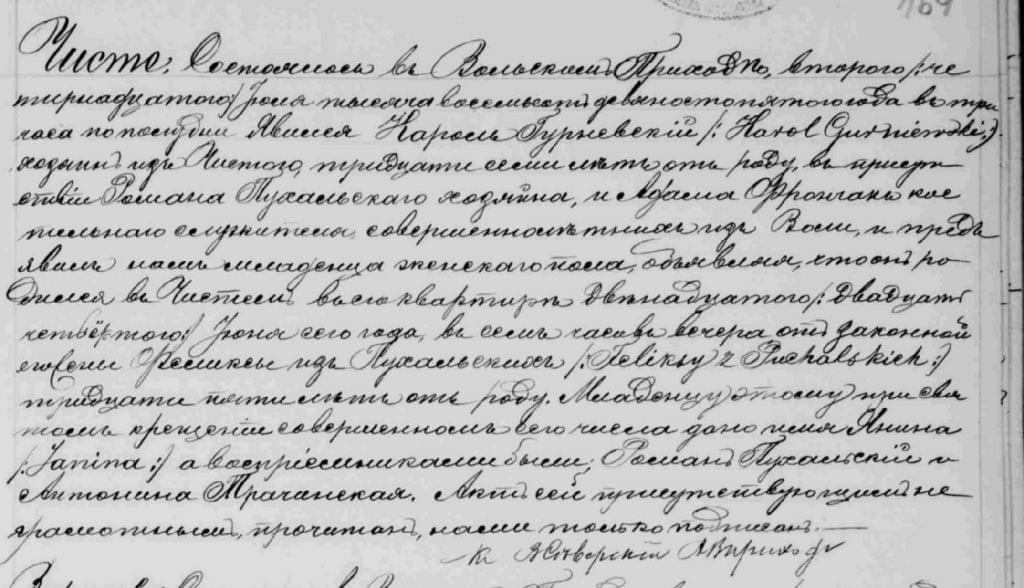 169
Чисте. Состоялось въ Вольскомъ Приходѣ, второго /:че
тырнадцатого:/ Іюля тысяча восемьсотъ девяностопятого года въ три
часа по полудни. Явился Кароль Гурневскій /: Karol Gurniewski:/
хозяинъ изъ Чистого, тридцати семи лѣтъ отъ роду, въ присут
ствіи Романа Пухальскаго хозяина, и Адама Фрончакъ кос
тельнаго служителя, совершеннолѣтнихъ изъ Воли, и предъ
явилъ намъ младенца женскаго пола, объявляя, что онъ ро
дился въ Чистемъ въ его квартирѣ двѣнадцатого /: двадцать
четвёртого:/ Іюня сего года, въ семь часовъ вечера отъ законной
его жены Феликсы изъ Пухальскихъ /: Feliksy z Puchalskich :/
тридцати пяти лѣтъ отъ роду. Младенцу этому при свя
томъ крещеніи совершенномъ сего числа дано имя Янина
/: Janina :/ а воспріемниками были; Романъ Пухальскій и
Антонина Трачанская. Актъ сей присутствующимъ не
грамотнымъ, прочитанъ, нами только подписанъ.